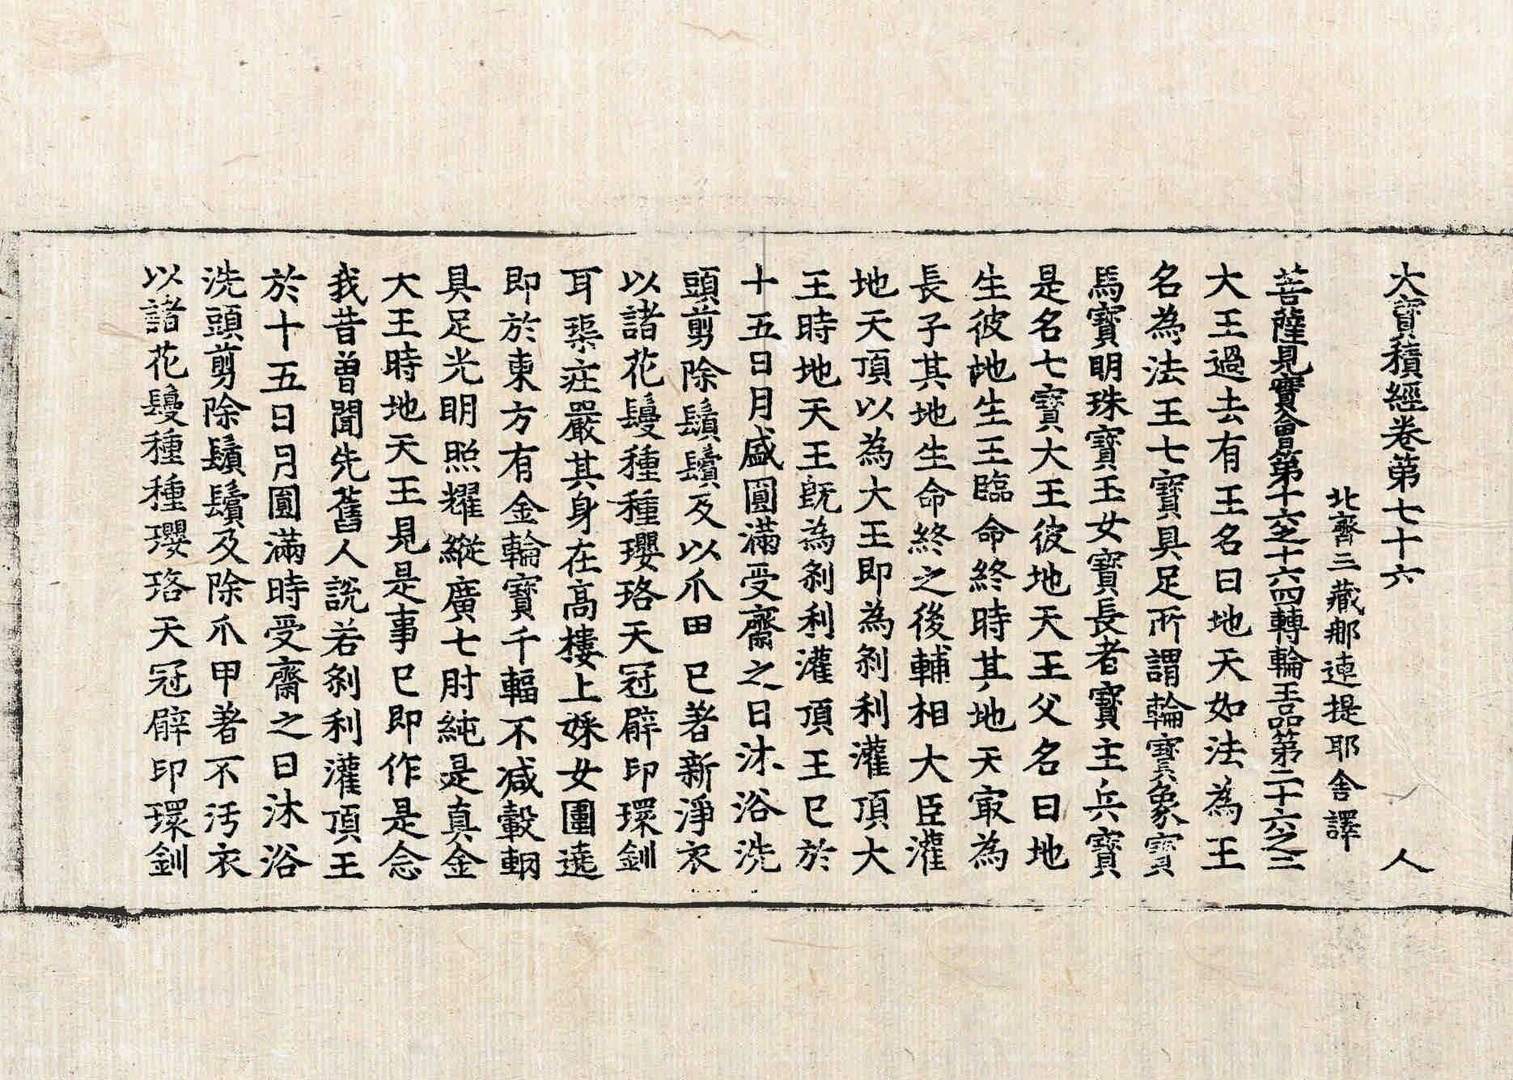 大寶積經卷第七十六 人
北齊三藏那連提耶舍譯
菩薩見實會第十六之十六四轉輪王品第二十六之三
大王過去有王名曰地天如法為王
名為法王七寶具足所謂輪寶象寶
馬寶明珠寶玉女寶長者寶主兵寶
是名七寶大王彼地天王父名曰地
生彼地生王臨命終時其地天㝡為
長子其地生命終之後輔相大臣灌
地天頂以為大王即為刹利灌頂大
王時地天王旣為刹利灌頂王已於
十五日月盛圓滿受齋之日沐浴洗
頭剪除鬚鬢及以爪田已著新淨衣
以諸花鬘種種瓔珞天冠臂印環釧
耳渠莊嚴其身在高樓上婇女圍遶
即於東方有金輪寶千輻不減轂輞
具足光明照耀縱廣七肘純是真金
大王時地天王見是事已即作是念
我昔曾聞先舊人說若刹利灌頂王
於十五日月圓滿時受齋之日沐浴
洗頭剪除鬚鬢及除爪甲著不汚衣
以諸花鬘種種瓔珞天冠臂印環釧